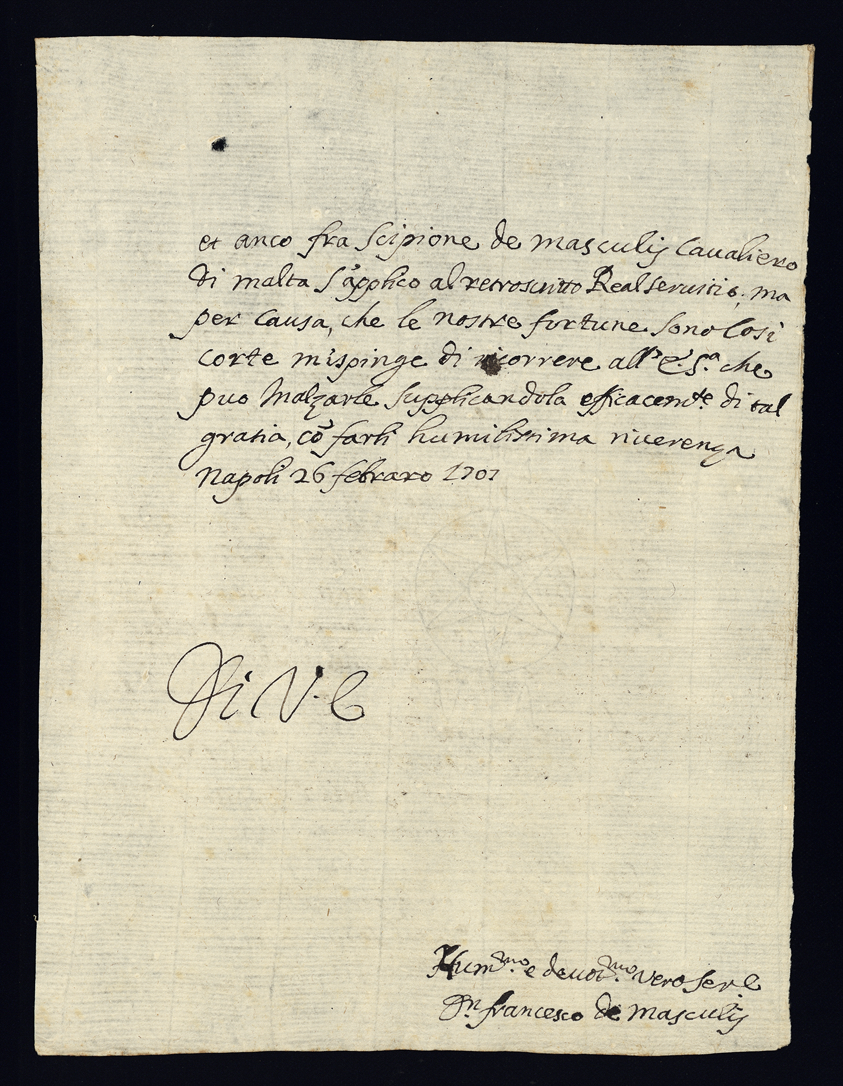 et anco fra Scipione de masculis Cavaliero
di malta s'applicò al retroscritto Real servitio, ma
per causa, che le nostre fortune sono così
corte mi spinge di ricorrere all' E. S.ª che
puo Inalzarle supplicandola efficacem.te di tal
gratia, cõ farli humilissima riverenza
Napoli 26 febraro 1701
Di V. E
Hum.mo e devot.mo vero Ser.e
Dn francesco de masculis